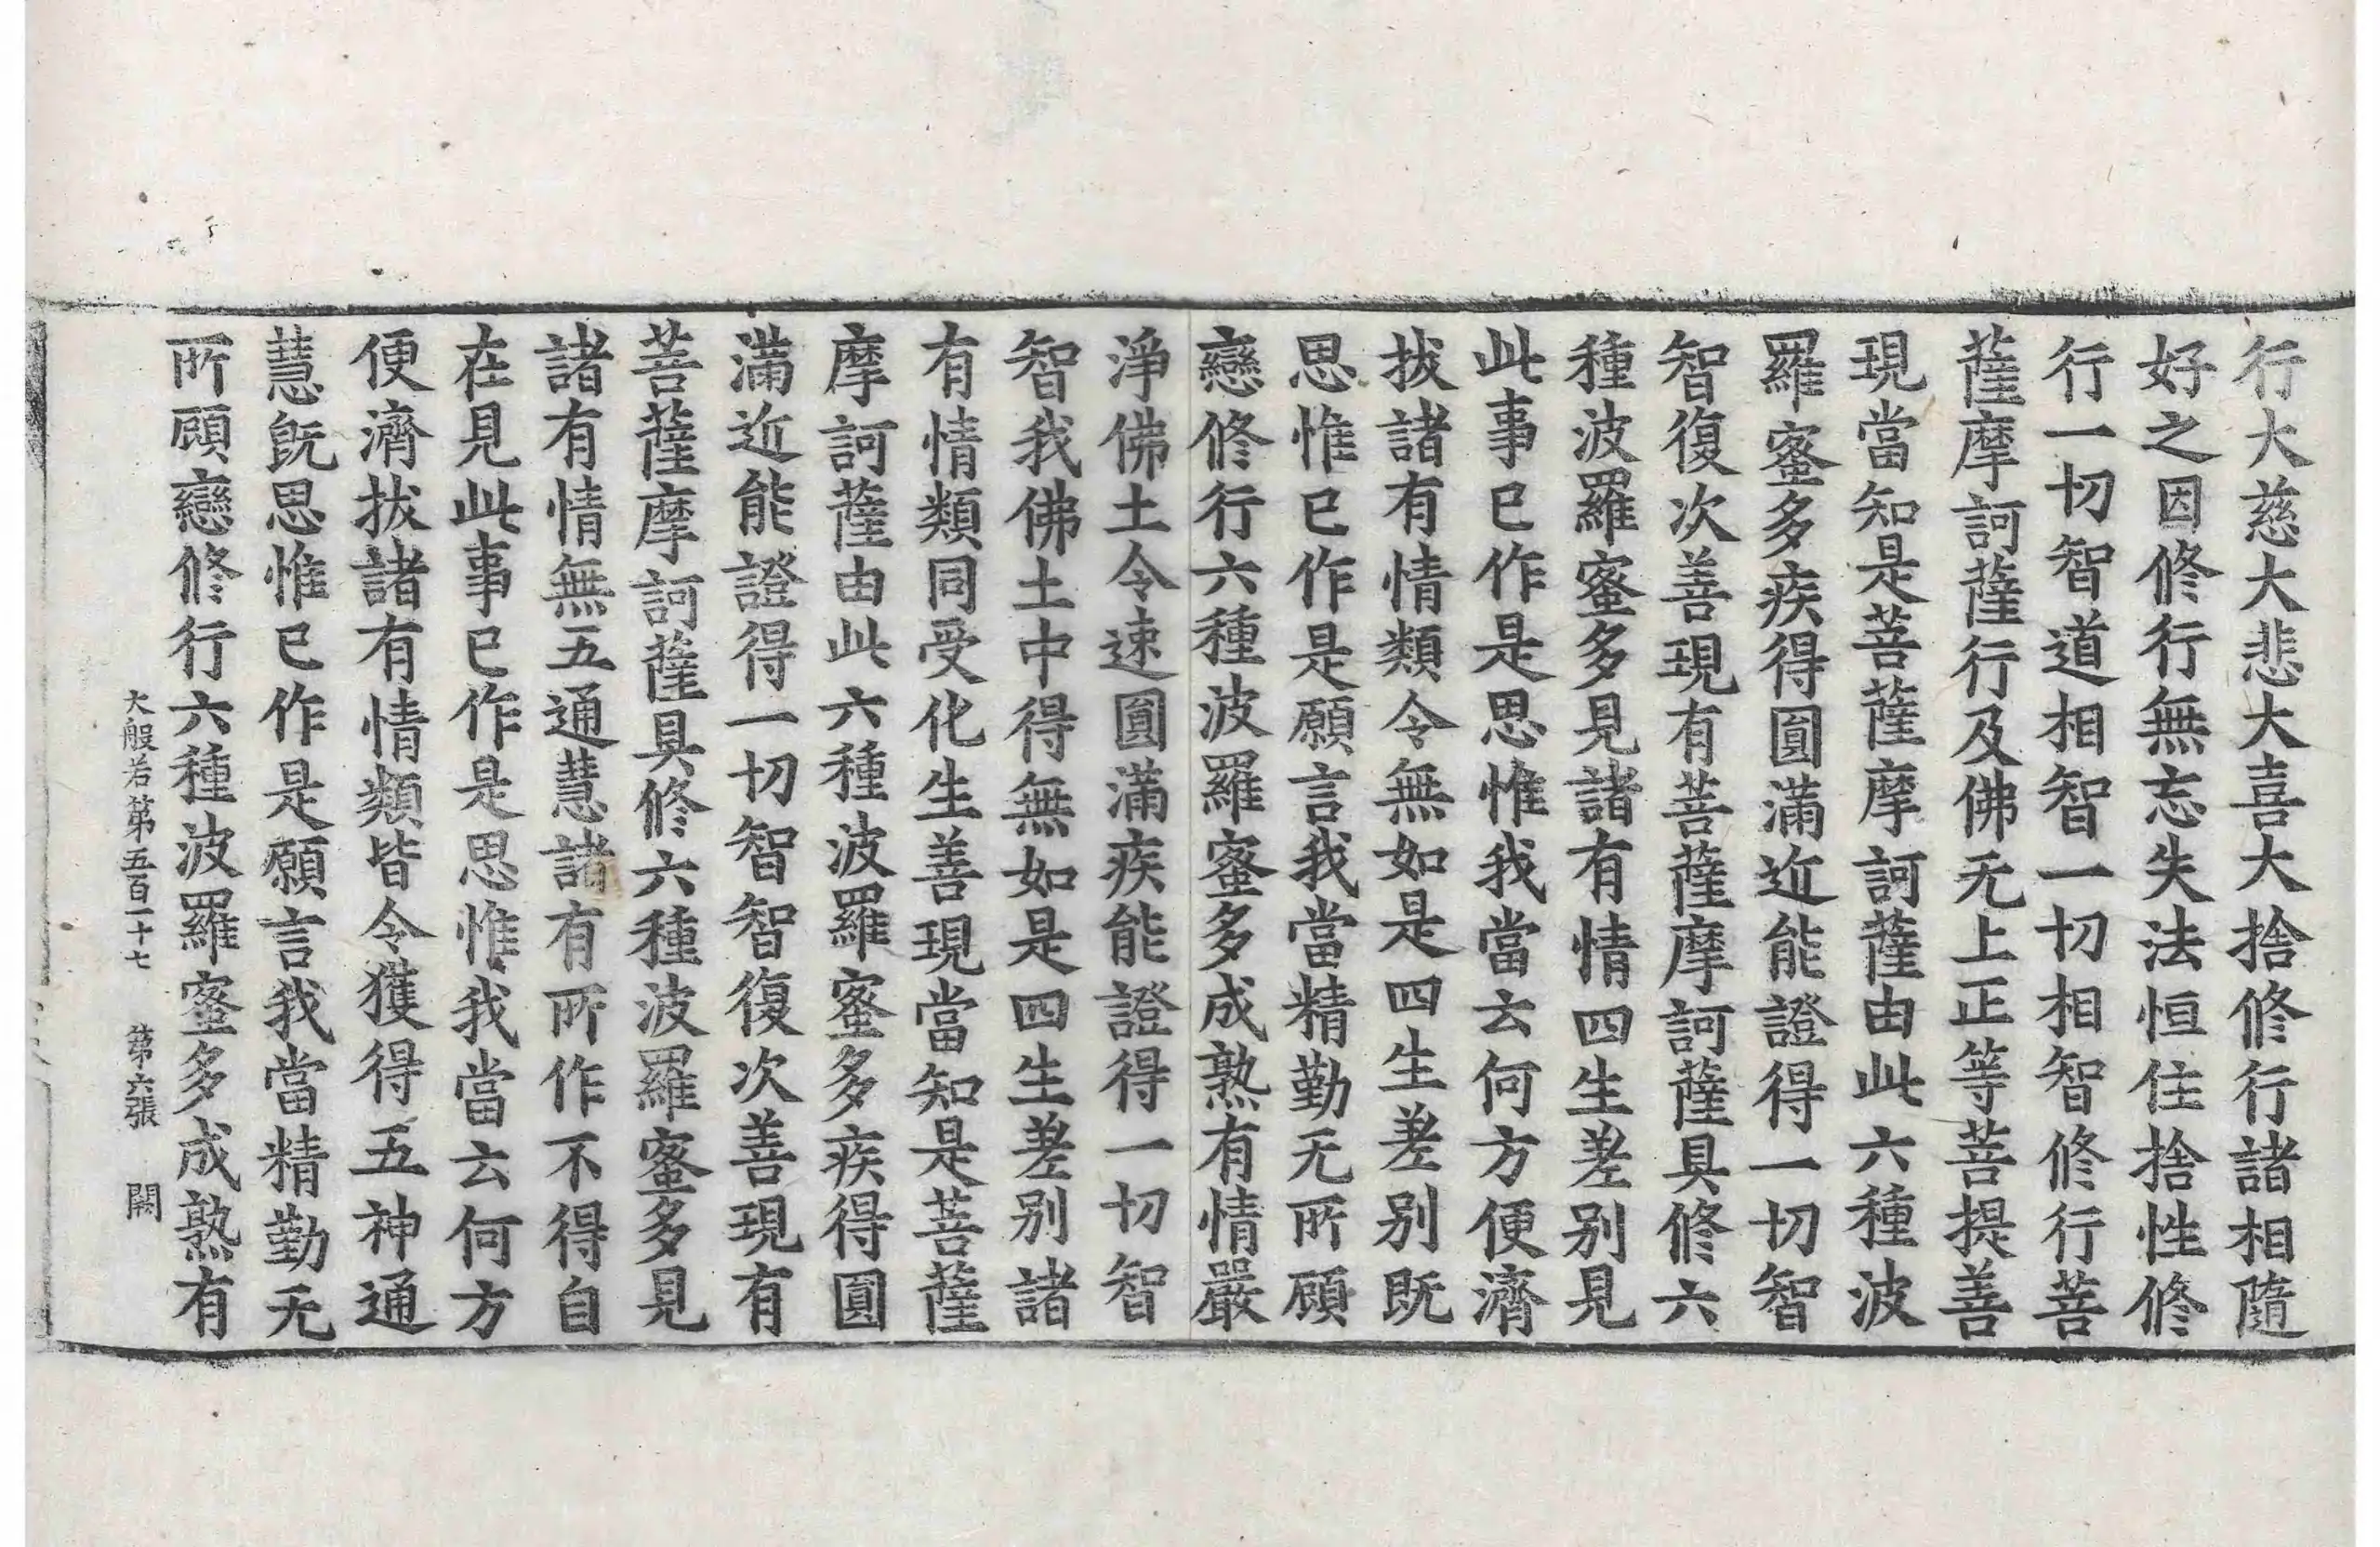 行大慈大悲大喜大捨修行諸相隨
好之因修行無忘失法恒住捨性修
行一切智道相智一切相智修行菩
薩摩訶薩行及佛无上正等菩提善
現當知是菩薩摩訶薩由此六種波
羅蜜多疾得圓滿近能證得一切智
智復次善現有菩薩摩訶薩具修六
種波羅蜜多見諸有情四生差別見
此事已作是思惟我當云何方便濟
拔諸有情類令無如是四生差別既
思惟已作是願言我當精勤无所顧
戀修行六種波羅蜜多成熟有情嚴
淨佛土令速圓滿疾能證得一切智
智我佛土中得無如是四生差別諸
有情類同受化生善現當知是菩薩
摩訶薩由此六種波羅蜜多疾得圓
滿近能證得一切智智復次善現有
菩薩摩訶薩具修六種波羅蜜多見
諸有情無五通慧諸有所作不得自
在見此事已作是思惟我當云何方
便濟拔諸有情類皆令獲得五神通
慧既思惟已作是願言我當精勤无
所顧戀修行六種波羅蜜多成熟有
大般若第五百一十七 第六張 闕